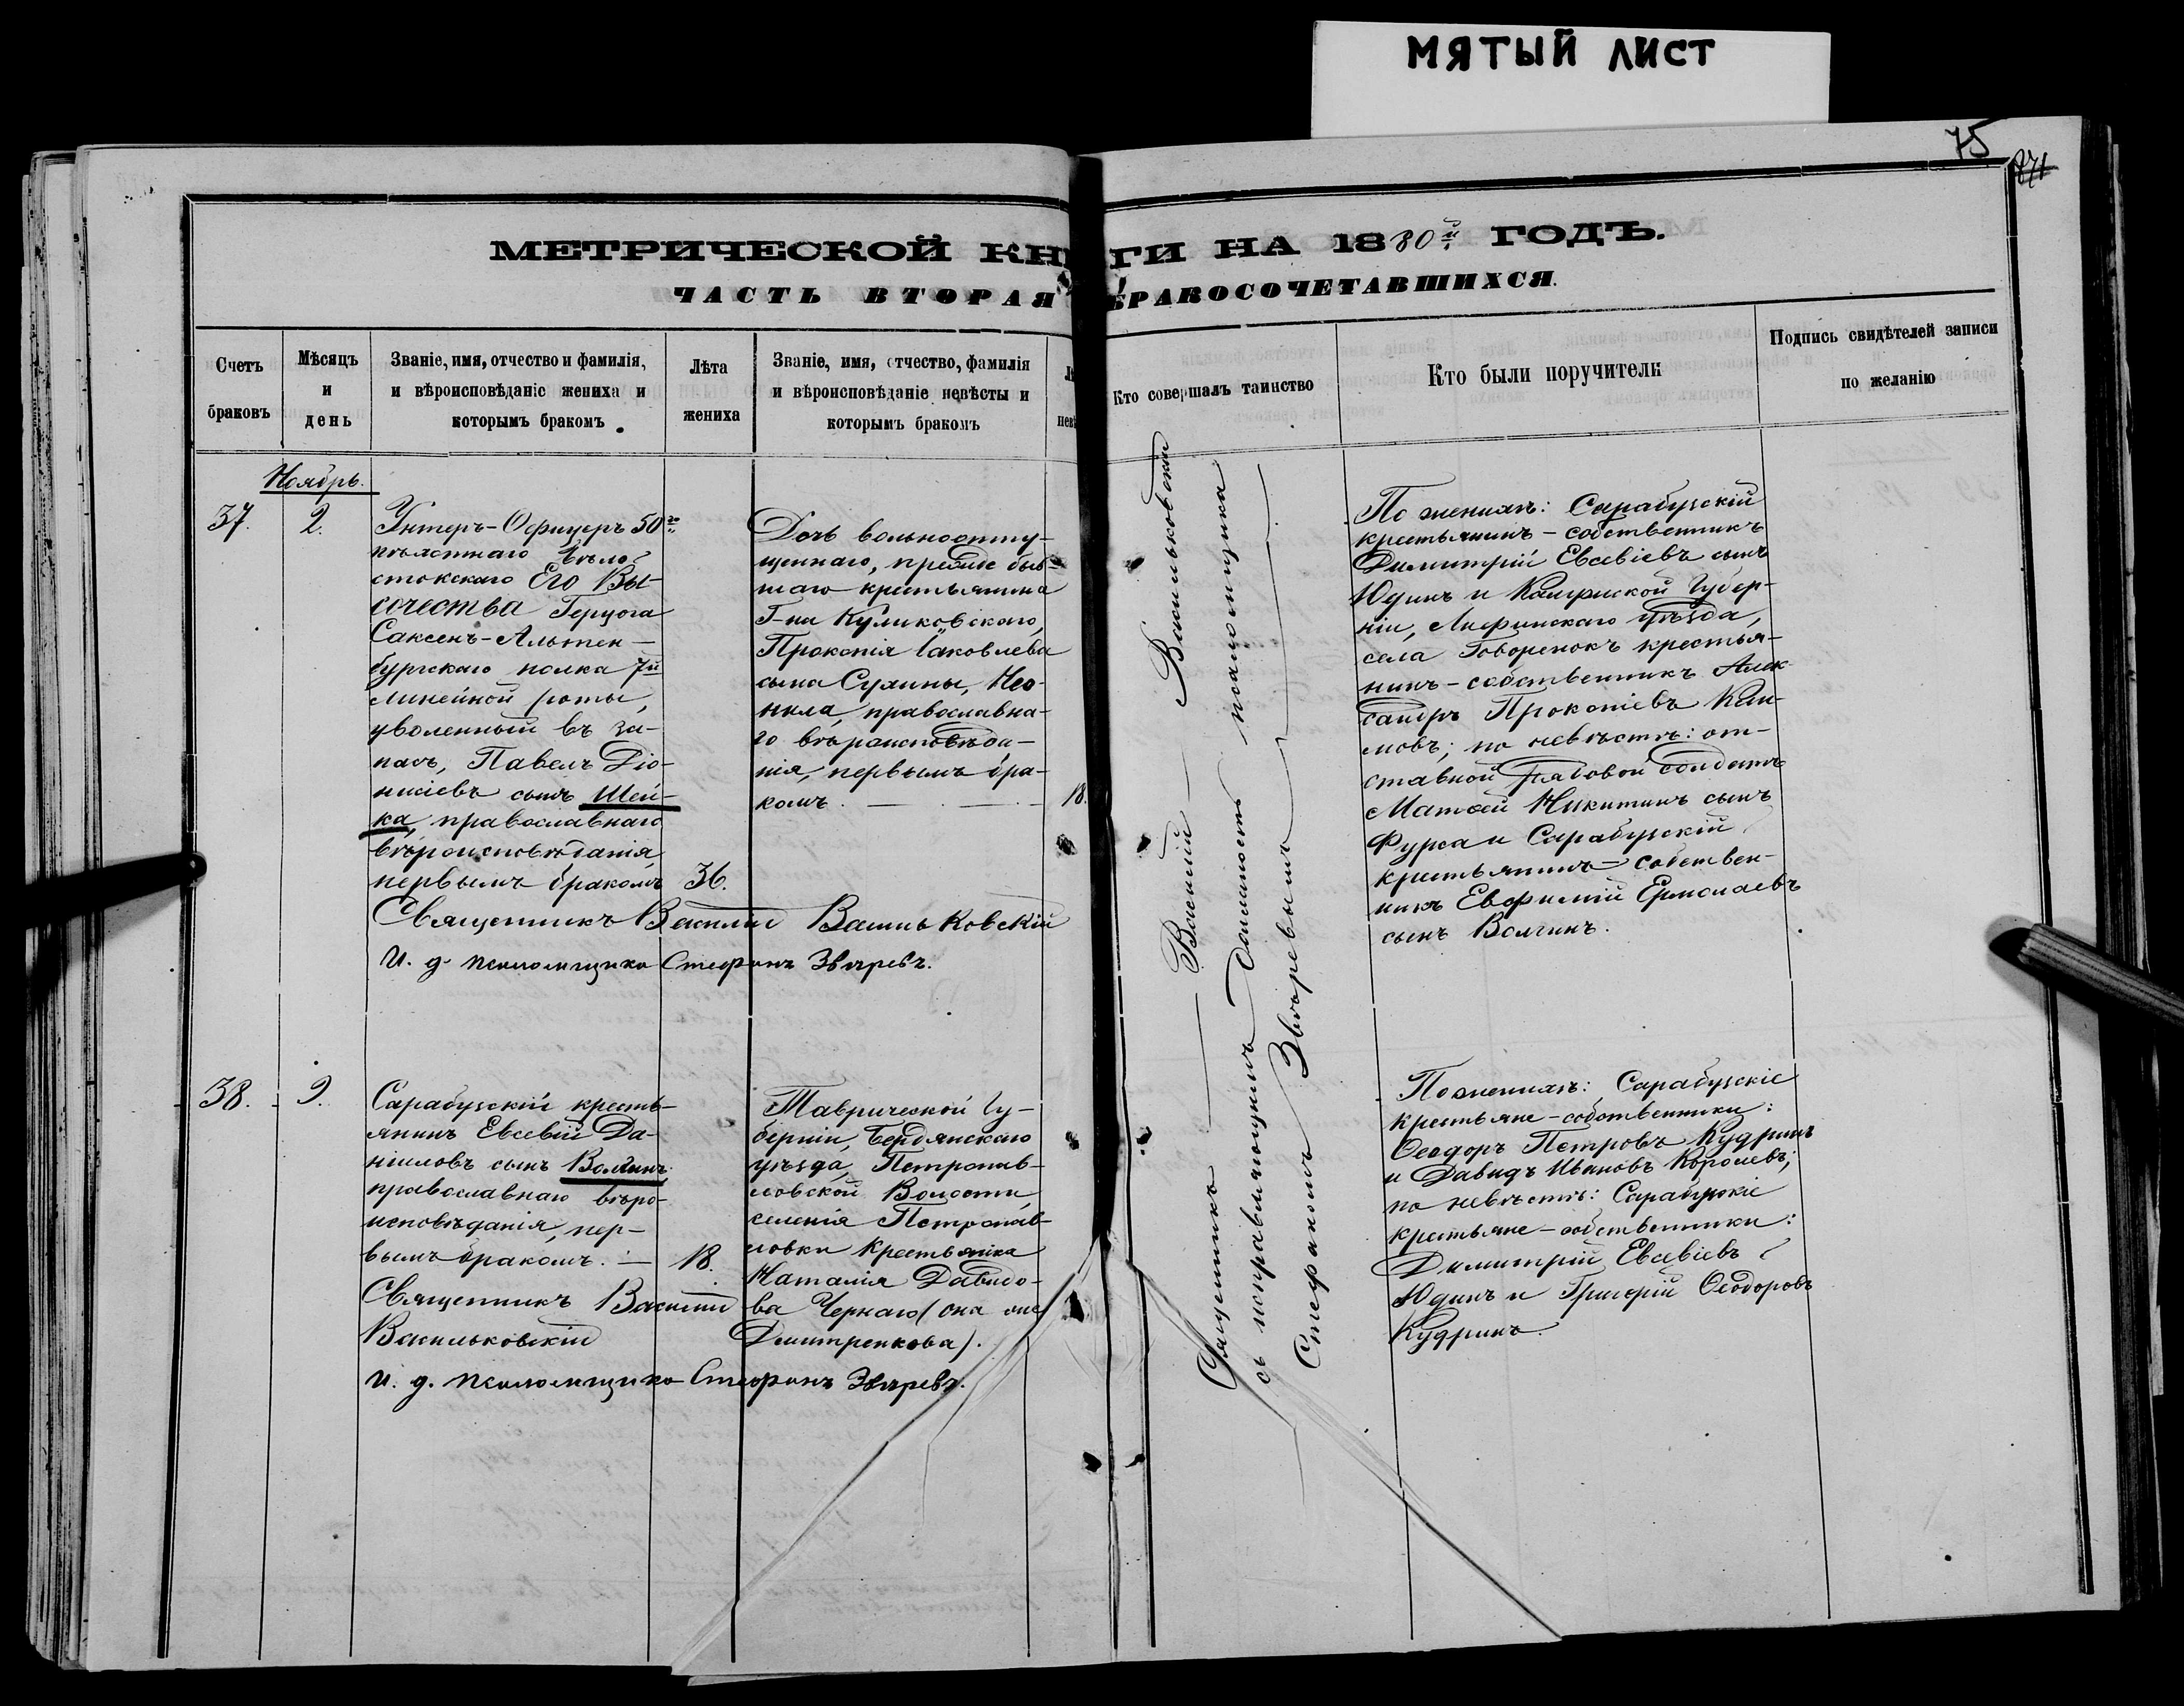 МЯТЫЙ ЛИСТ
75
МЕТРИЧЕСКОЙ КНИГИ НА 1880й ГОДЪ.
ЧАСТЬ ВТОРАЯ БРАКОСОЧЕТАВШИХСЯ.
Счетъ
браковъ
Мѣсяцъ
и
день
Званіе, имя, отчество и фамилія,
и вѣроисповѣданіе жениха и
которымъ бракомъ
Лѣта
жениха
Званіе, имя, отчество, фамилія
и вѣроисповѣданіе невѣсты и
которымъ бракомъ
Кто совершалъ таинство
Кто были поручители
Подпись свидѣтелей записи
по желанію
Ноябрь.
37.
2.
Унтеръ-Офицеръ 50го
пѣхотнаго Бѣло-
стокскаго Его Вы-
сочества Герцога
Саксенъ-Альтен-
бургскаго полка 7й
линейной роты,
уволенный въ за-
пасъ, Павелъ Діо-
нисіевъ сынъ Шей-
ка, православнаго
вѣроисповѣданія,
первымъ бракомъ
36.
Дочь вольноотпу-
щеннаго, прежде быв-
шаго крестьянина
Г-на Куликовскаго,
Прокопія Іаковлева
сына Сухины, Нео-
нила, православна-
го вѣроисповѣда-
нія, первымъ бра-
комъ. — . — . —
18.
Священникъ Василій Васильковскій
И. д. псаломщика Стефанъ Звѣревъ.
Священникъ — Василій — Васильковскій
съ исправляющимъ должность псаломщика
Стефаномъ Звѣревымъ
По женихѣ: Сарабузскій
крестьянинъ-собственникъ
Димитрій Евсевіевъ сынъ
Юдинъ и Калужской Губер-
ніи, Лихвинскаго уѣзда,
села Говоренокъ крестья-
нинъ-собственникъ Алек-
сандръ Прокопіевъ Кли-
мовъ; по невѣстѣ: от-
ставной рядовой солдатъ
Матѳей Никитинъ сынъ
Фурса и Сарабузскій
крестьянинъ-собствен-
никъ Евфимій Ермолаевъ
сынъ Волгинъ.
38.
9.
Сарабузскій кресть-
янинъ Евсевій Да-
ніиловъ сынъ Волгинъ,
православнаго вѣро-
исповѣданія, пер-
вымъ бракомъ. —
18.
Таврической Гу-
берніи, Бердянскаго
уѣзда, Петропав-
ловской Волости,
селенія Петропав-
ловки крестьянка
Наталія Давидо-
ва Чернаго (она же
Дмитренкова).
Священникъ Василій
Васильковскій
И. д. псаломщика Стефанъ Звѣревъ.
По женихѣ: Сарабузскіе
крестьяне-собственники:
Ѳеодоръ Петровъ Кудринъ
и Давидъ Ивановъ Королевъ;
по невѣстѣ: Сарабузскіе
крестьяне-собственники:
Димитрій Евсевіевъ
Юдинъ и Григорій Ѳеодоровъ
Кудринъ.